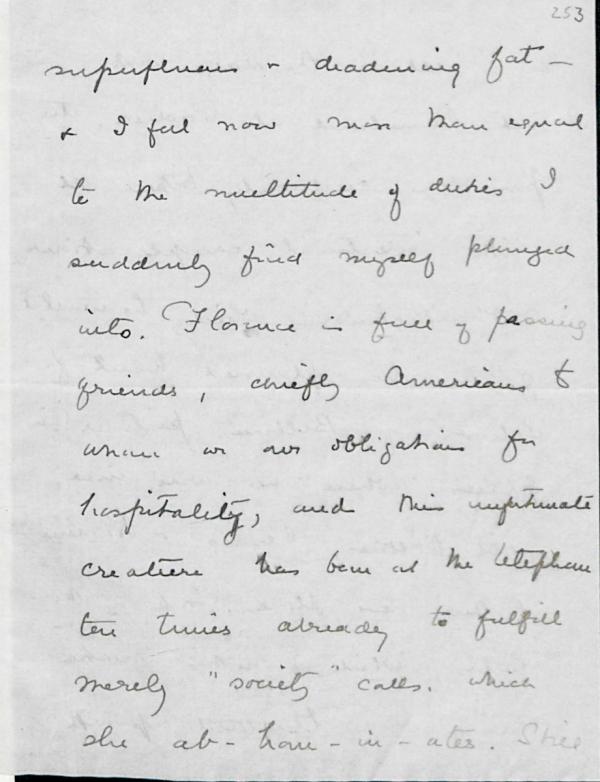 253
superfluous & deadening fat —
& I feel now more than equal
to the multitude of duties I
suddenly find myself plunged
into. Florence is full of passing
friends, chiefly Americans to
whom we owe obligations for
hospitality, and this unfortunate
creature has been at the telephone
ten times already to fulfill
merely "society" calls, which
she ab-hom-in-ates. Still